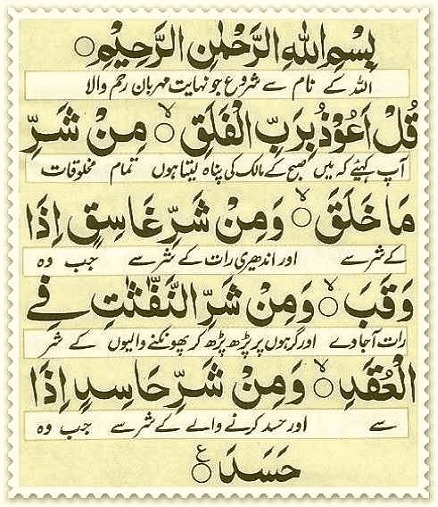 بِسْمِ اللّٰهِ الرَّحْمٰنِ الرَّحِيْمِ ○
اللہ کے نام سے شروع جو نہایت مہربان رحم والا
قُلْ اَعُوْذُ بِرَبِّ الْفَلَقِ ○ مِنْ شَرِّ
آپ کہیئے کہ میں صبح کے مالک کی پناہ لیتا ہوں تمام مخلوقات
مَا خَلَقَ ○ وَمِنْ شَرِّ غَاسِقٍ اِذَا
کے شر سے اور اندھیری رات کے شر سے جب وہ
وَقَبَ ○ وَمِنْ شَرِّ النَّفّٰثٰتِ فِے
رات آجاوے اور گرہوں پر پڑھ پڑھ کر پھونکنے والیوں کے شر
الْعُقَدِ ○ وَمِنْ شَرِّ حَاسِدٍ اِذَا
سے اور حسد کرنے والے کے شر سے جب وہ
حَسَدَ ○